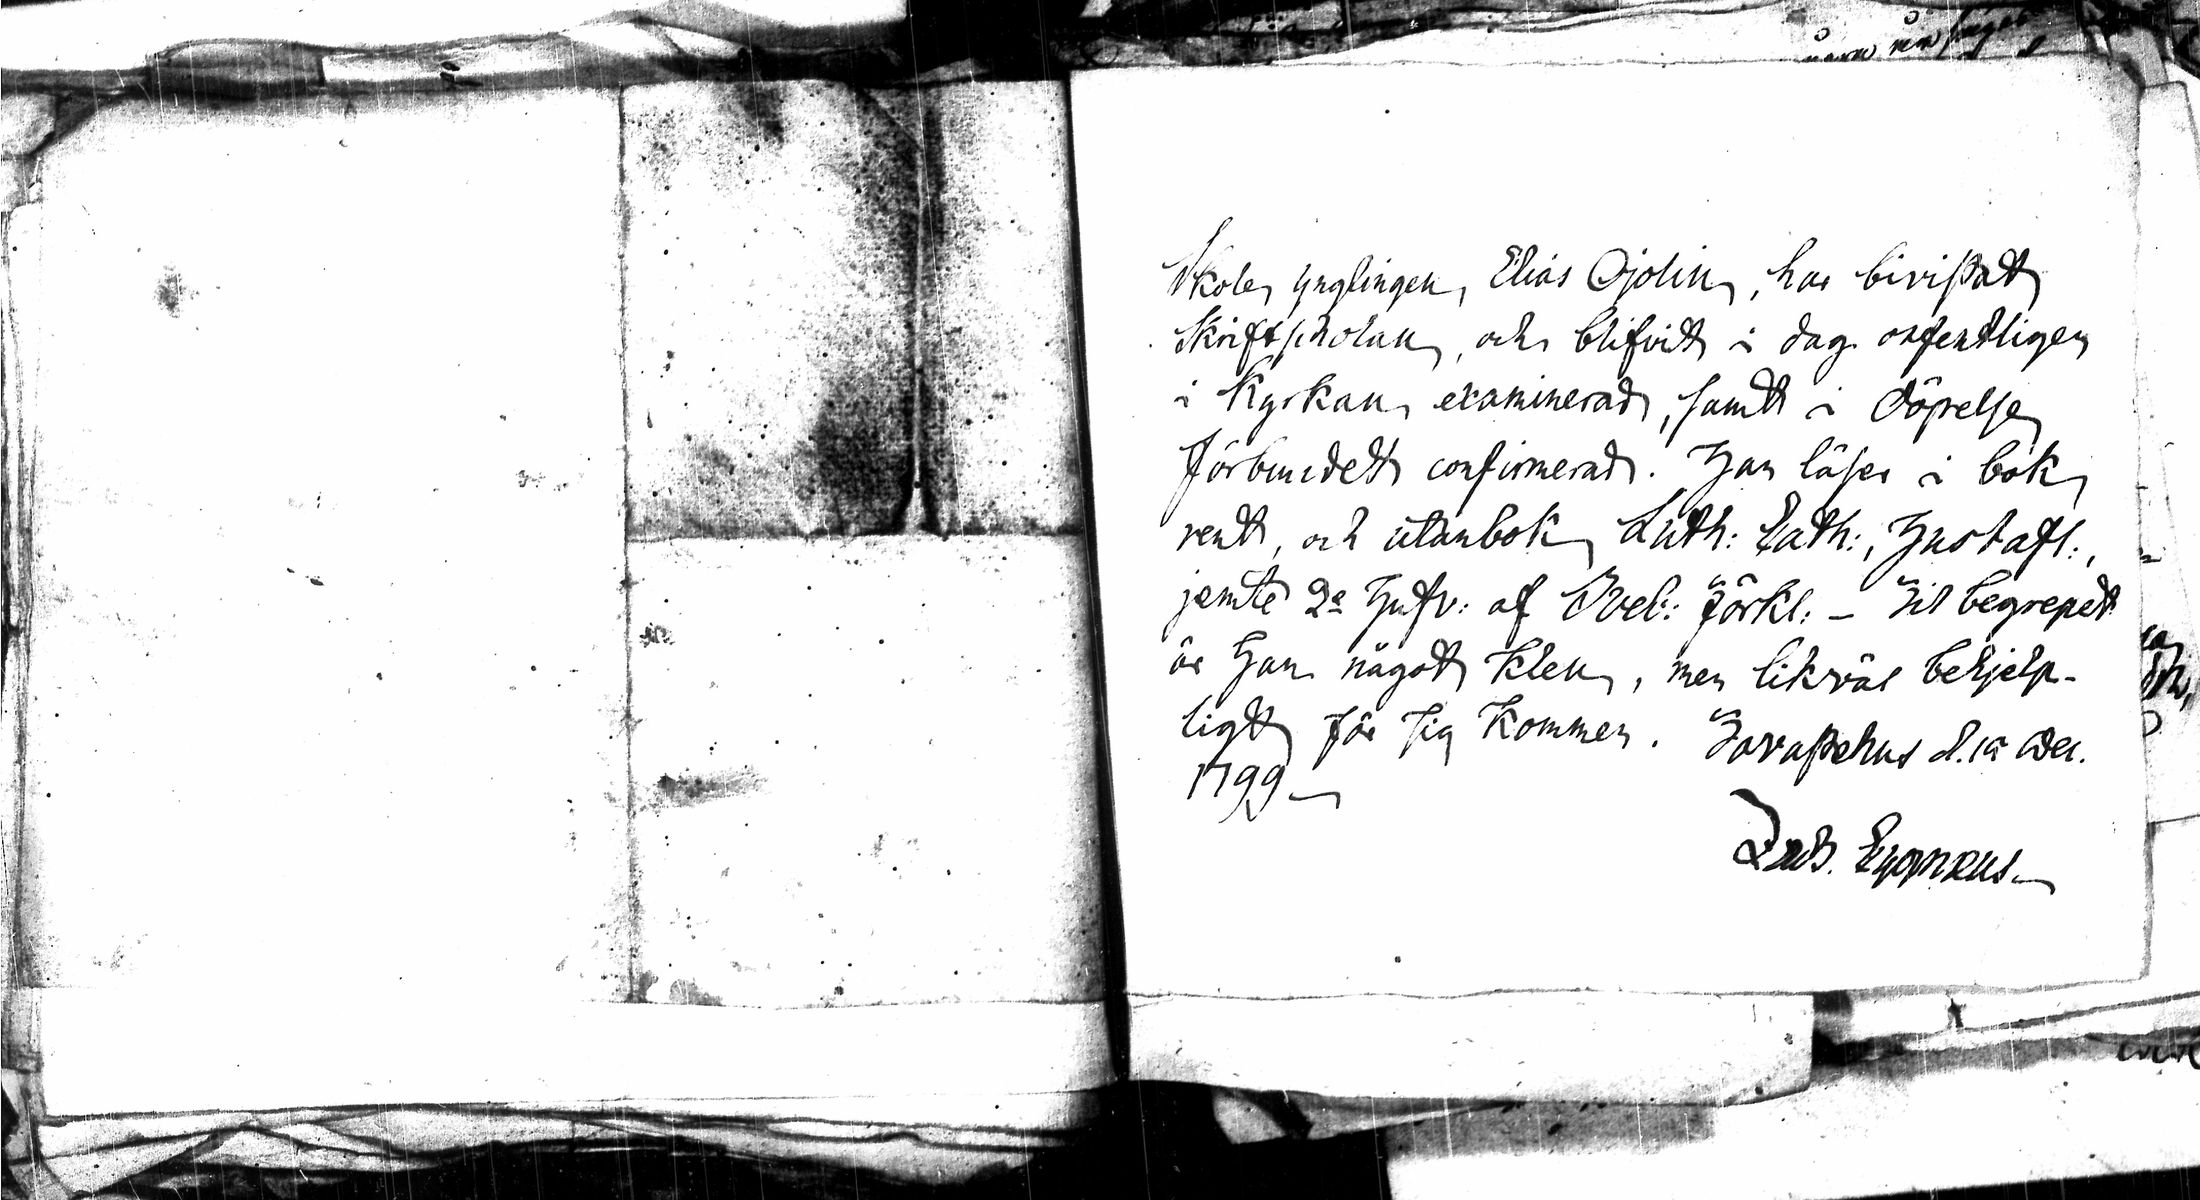 Skole ynglingen, Elias Ojolin, har biviſtat
Skriftscholan, och blifvit i dag offentligen
i Kyrkan examinerad, samt i Döpelse
förbundet confirmerad. Han läser i bok
rent, och utanbok Luth: Cath:, Hustafl:,
jemte 2e Hufv: af Svel: förkl: – Til begrepet
är Han något klen, men likväl behjelp-
ligt för sig kommen. d. 12 Dec.
1799